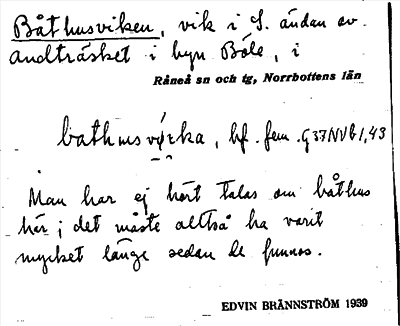 Båthusviken, vik i S. ändan av
Andträsket i byn Böle, i
Råneå sn och tg, Norrbottens län
bathusvøıka, bf. fem. G37NVb1,43
Man har ej hört talas om båthus
här; det måste alltså ha varit
mycket länge sedan de funnos.
EDVIN BRÄNNSTRÖM 1939